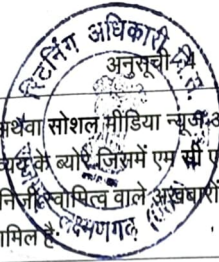 रिटर्निंग अधिकारी
अनुसूची 4
अथवा सोशल मीडिया न्यूज
व्यय के ब्योरे जिसमें एम सी ए
निजी स्वामित्व वाले अखबारों
लक्ष्मणगढ़
ामिल है: